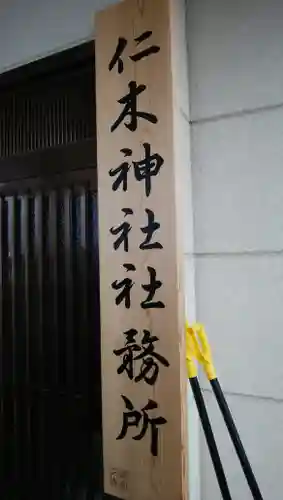 仁木神社社務所